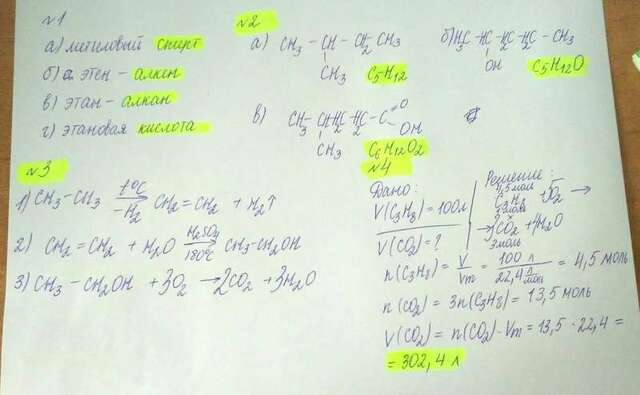 №1
а) метиловый спирт
б) а этен - алкен
в) этан - алкан
г) этановая кислота
№2
а) CH3 - CH - CH2 - CH3
CH3
C5H12
б) H3C - HC - H2C - H2C - CH3
OH
C5H12O
в) CH3 - CH - H2C - H2C - C = O
OH
CH3
C6H12O2
№3
1) CH3 - CH3 t°C → -H2 CH2 = CH2 + H2↑
2) CH2 = CH2 + H2O H2SO4 → 180°C CH3 - CH2OH
3) CH3 - CH2OH + 3O2 → 2CO2 + 3H2O
№4
Дано:
V(C3H8) = 100л
V(CO2) = ?
Решение:
4,5моль
C3H8 + 5O2 →
1моль
→ 3CO2 + 4H2O
3моль
n(C3H8) = V/Vm = 100 л / 22,4 л/моль = 4,5 моль
n(CO2) = 3n(C3H8) = 13,5 моль
V(CO2) = n(CO2) · Vm = 13,5 · 22,4 =
= 302,4 л